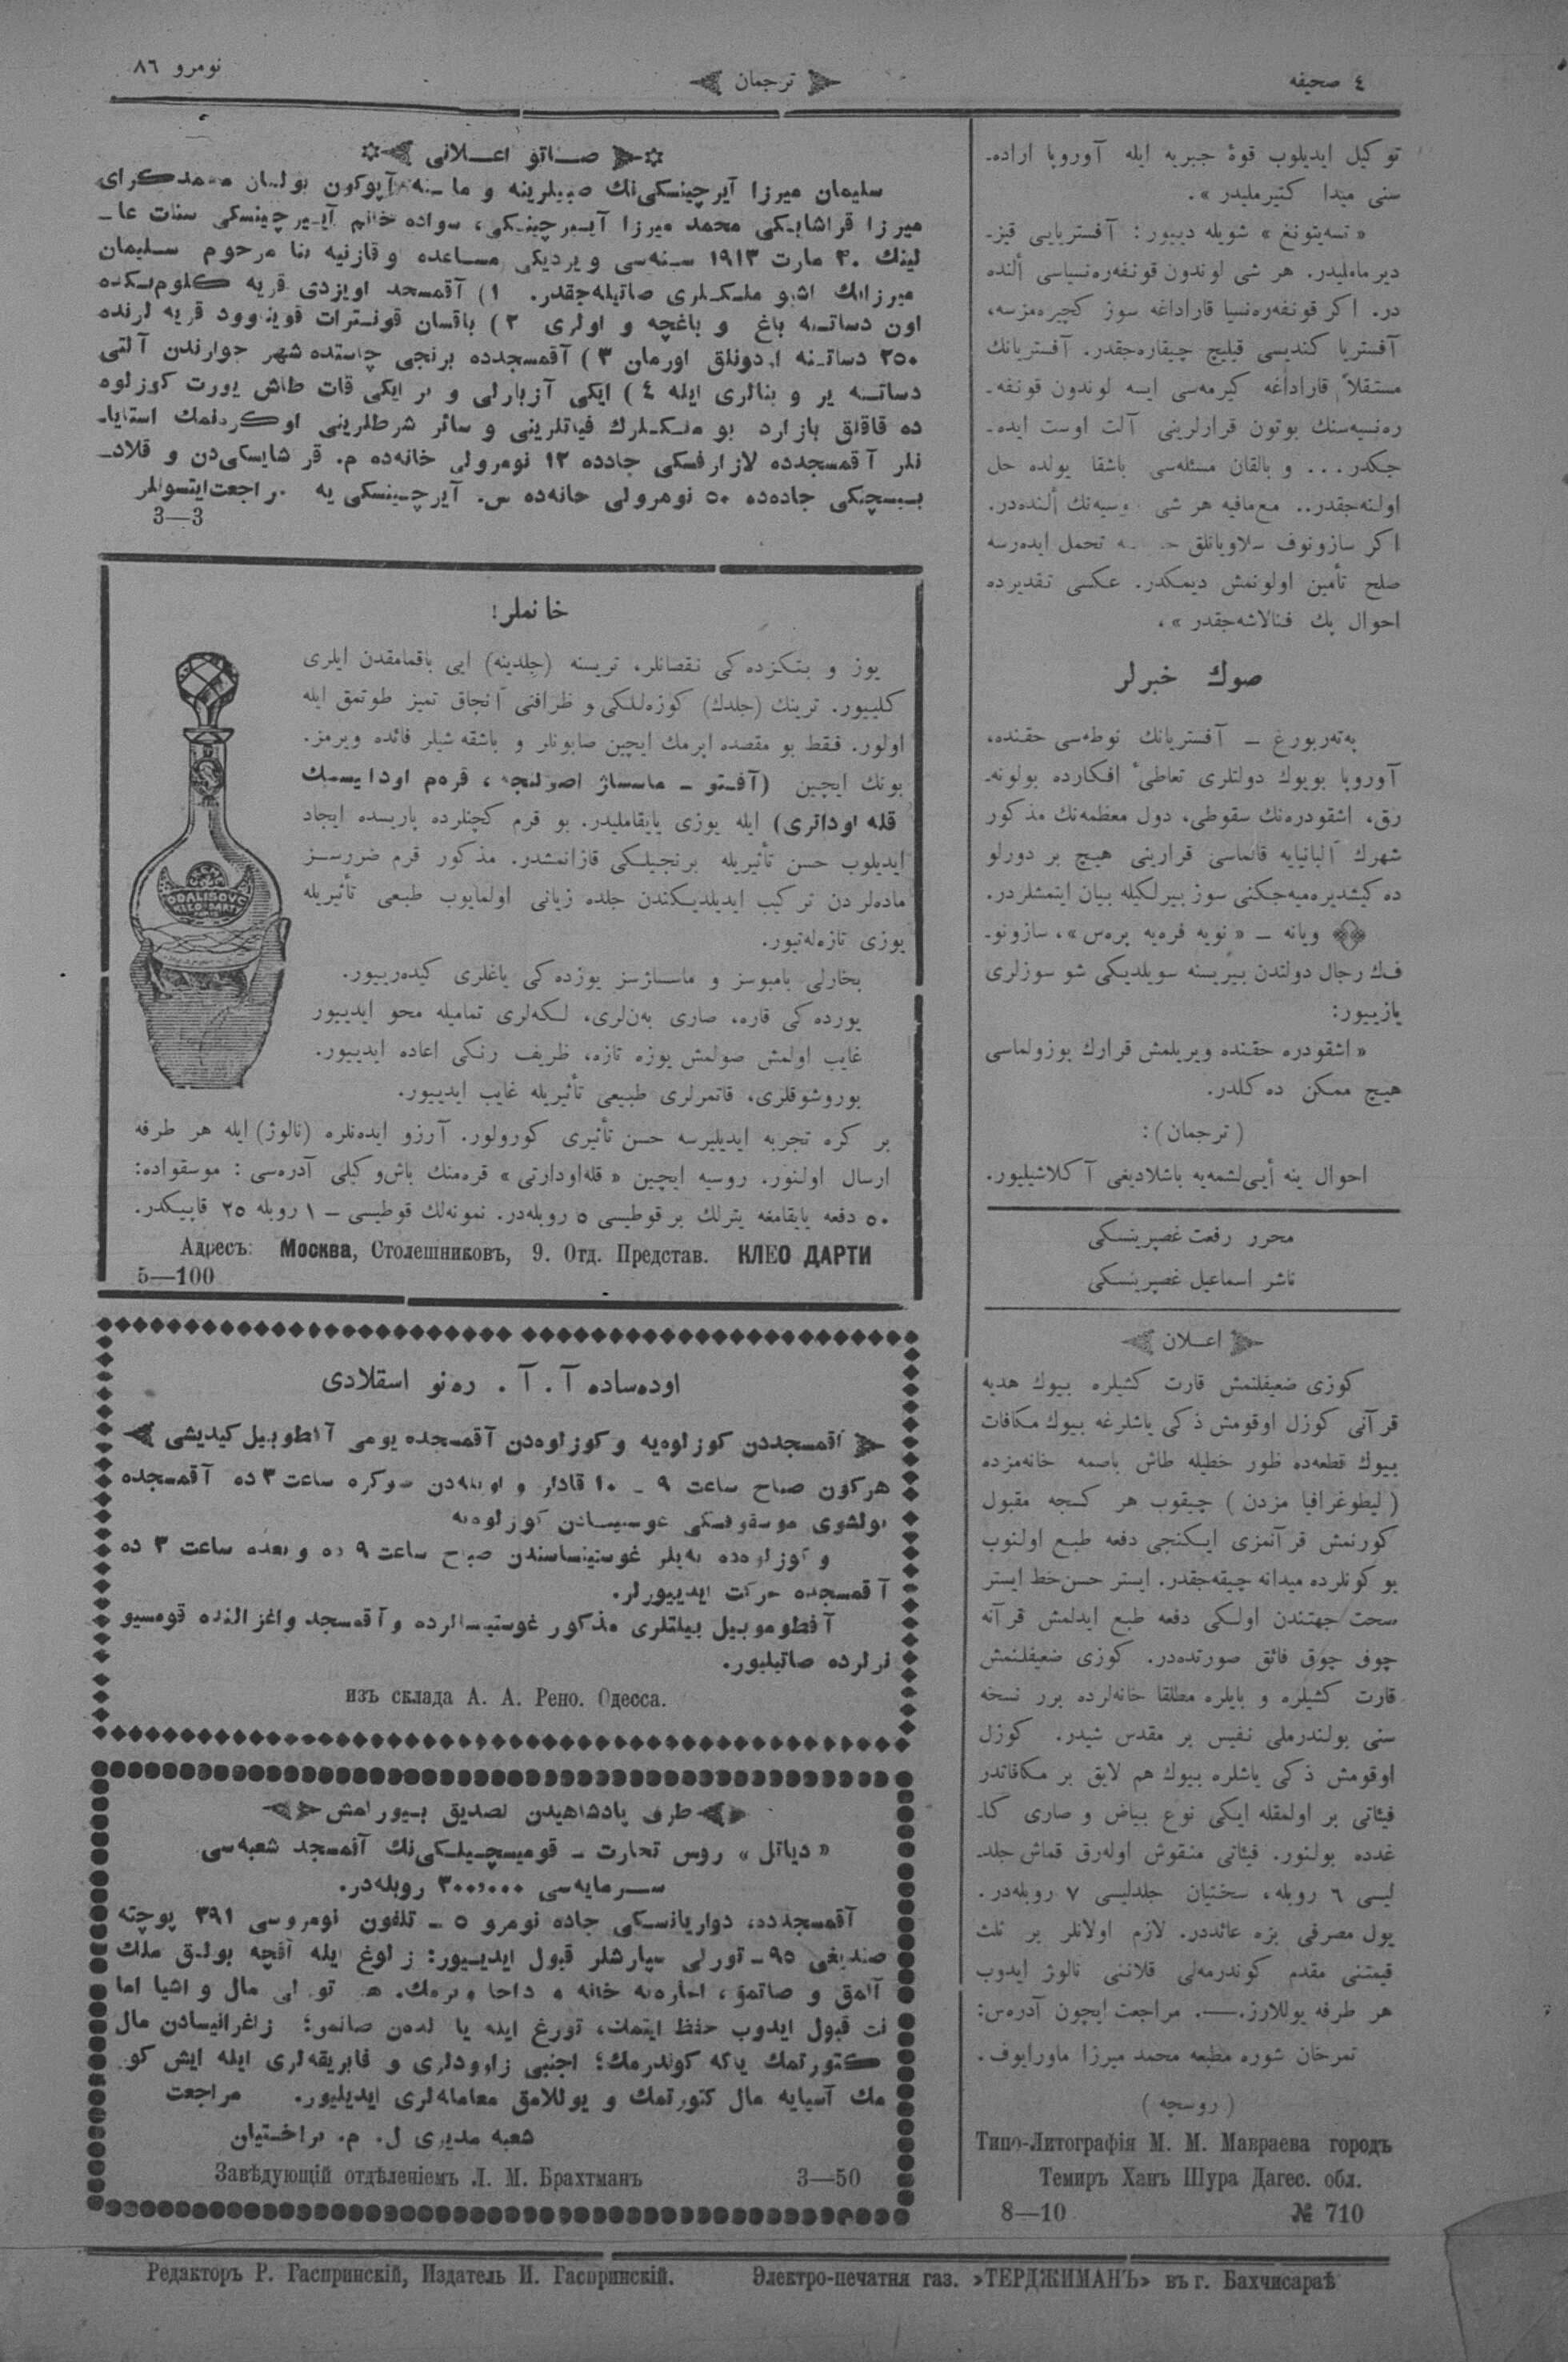 ٤ صحیفه
ترجمان
نومرو ٨٦
توكیل ایدیلوب قوۀ جبریه ایله آوروپا اراده‌ـ
سنی میدا كتیرملیدر ».
« تسەیتونغ » شویله دییور: آفستریایی قیز‌ـ
دیرماملیدر. هر شی لوندون قونفەرەنسیاسی ألنده
در. اكر قونفەرەنسیا قاراداغه سوز كچیرەمزسه،
آفستریا كندیسی قیلیچ چیقارەجقدر. آفستریانك
مستقلاً قاراداغه كیرمەسی ایسه لوندون قونفه‌ـ
رەنسیەسنك بوتون قرارلرینی آلت اوست ایده‌ـ
جكدر... و بالقان مسئلەسی باشقا یولده حل
اولنەجقدر.. مع‌مافیه هر شی روسیەنك ألندەدر.
اكر سازونوف سلاویانلق تحمل ایدەرسه
صلح تأمین اولونمش دیمكدر. عكسی تقدیرده
احوال پك فنالاشەجقدر »،
صوك خبرلر
پەتەربورغ – آفستریانك نوطەسی حقنده،
آوروپا بویوك دولتلری تعاطیٔ افكارده بولونه‌ـ
رق، اشقودرەنك سقوطی، دول معظمەنك مذكور
شهرك آلبانیایه قالماسی قرارینی هیچ بر دورلو
ده كیشدیرەمیەجكنی سوز بیرلكیله بیان ایتمشلردر.
ویانه – « نویه فرەیه پرەس »، سازونو‌ـ
فك رجال دولتدن بیریسنه سویلدیكی شو سوزلری
یازییور:
« اشقودره حقنده ویریلمش قرارك بوزولماسی
هیچ ممكن ده كلدر.
( ترجمان ):
احوال ینه أیی‌لشمەیه باشلادیغی آكلاشیلیور.
محرر رفعت غصپرینسكی
ناشر اسماعیل غصپرینسكی
اعلان
كوزی ضعیفلنمش قارت كشیلره بیوك هدیه
قرآنی كوزل اوقومش ذكی یاشلرغه بیوك مكافات
بیوك قطعەده ظور خطیله طاش باصمه خانەمزده
( لیطوغرافیا مزدن ) چیقوب هر كسجه مقبول
كورنمش قرآنمزی ایكنجی دفعه طبع اولنوب
بو كونلرده میدانه چیقەجقدر. ایستر حسن‌خط ایستر
صحت جهتندن اولكی دفعه طبع ایدلمش قرآنه
چوق چوق فائق صورتدەدر. كوزی ضعیفلنمش
قارت كشیلره و بایلره مطلقا خانەلرده برر نسخه
سنی بولندرملی نفیس بر مقدس شیدر. كوزل
اوقومش ذكی یاشلره بیوك هم لایق بر مكافاتدر
فیئاتی بر اولمقله ایكی نوع بیاض و صاری كا‌ـ
غدده بولنور. فیئاتی منقوش اولەرق قماش جلد‌ـ
لیسی ٦ روبله، سختیان جلدلیسی ٧ روبلەدر.
یول مصرفی بزه عائددر. لازم اولانلر بر ثلث
قیمتنی مقدم كوندرمەلی قلاننی نالوژ ایدوب
هر طرفه یوللارز.—. مراجعت ایچون آدرەس:
تمرخان شوره مطبعه محمد میرزا ماورایوف.
( روسچه )
Типо-Литографія М. М. Мавраева городъ
Темиръ Ханъ Шура Дагес. обл.
8—10 № 710
صاتو اعلانی
سلیمان میرزا آیرچینسكی‌نك صبیلرینه
میرزا قراشایسكی محمد میرزا آیرچینسكی، سواده خانم آیرچینسكی سنات عا‌ـ
لینك ٣٠ مارت ١٩١٣ سنەسی ویردیكی مساعده وقازنیه بنا مرحوم سلیمان
میرزانك اشبو ملكلری صاتیلەجقدر. ١) آقمسجد اویزدی قریه
اون دساتنه باغ و باغچه و اولری ٢)
٢٥٠ دساتنه اودونلق اورمان ٣) آقمسجدده برنجی چاستده شهر جوارندن آلتی
دساتنه یر و بنالری ایله ٤) ایكی آزبارلی و بر ایكی قات طاش یورت كوزلوه
ده قاقلق بازارد بو ملكلرك فیاتلرینی و سائر شرطلرینی اوكرنمك استایا‌ـ
نلر آقمسجدده لازارفسكی جادده ١٢ نومرولی خانەده م. قرشایسكی‌دن و قلاد‌ـ
بیسچنكی جادەده ٥٠ نومرولی خانەده س. آیرچینسكی یه مراجعت‌ایتسونلر
3—3
خانملر!
یوز و بتكزدەكی نقصانلر، تریسنه (جلدینه) ایی باقمامقدن ایلری
كلییور. ترینك (جلدك) كوزەللكی و ظرافتی آنجاق تمیز طوتمق ایله
اولور. فقط بو مقصده ایرمك ایچین صابونلر و باشقه شیلر فائده ویرمز.
بونك ایچین (آفتو – ماسساژ اصولنجه، قرەم اودالیسك
قله‌اودارتی) ایله یوزی یایقاملیدر. بو قرم كچنلرده پاریسده ایجاد
ایدیلوب حسن تأثیریله برنجیلكی قازانمشدر. مذكور قرم ضررسز
مادەلردن تركیب ایدیلدیكندن جلده زیانی اولمایوب طبیعی تأثیریله
یوزی تازەلەتیور.
بخارلی پامبوسز و ماسساژسز یوزدەكی یاغلری كیدەرییور.
یوزدەكی قاره، صاری بەن‌لری، لكەلری تمامیله محو ایدییور
غایب اولمش صولمش یوزه تازه، ظریف رنكی اعاده ایدییور.
بوروشوقلری، قاتمرلری طبیعی تأثیریله غایب ایدییور.
بر كره تجربه ایدیلیرسه حسن تأثیری كورولور. آرزو ایدەنلره (نالوژ) ایله هر طرفه
ارسال اولنور. روسیه ایچین « قله‌اودارتی » قرەمنك باش‌وكیلی آدرەسی: موسقواده:
٥٠ دفعه یایقامغه یترلك بر قوطیسی ٥ روبلەدر. نمونەلك قوطیسی – ١ روبله ٢٥ قاپیكدر.
Адресъ: Москва, Столешниковъ, 9. Отд. Представ. КЛЕО ДАРТИ
5—100
اودەساده آ. آ. رەنو اسقلادی
آقمسجددن كوزلوەیه وكوزلوەدن آقمسجده یومی آفطوبیل كیدیشی
هركون صباح ساعت ٩ – ١٠ قادار و اویلەدن صوكره ساعت ٣ ده آقمسجده
بولشوی موسقوفسكی غوستینسادن كوزلوەیه
و كوزلوەده بەیلر غوستینساسندن صباح ساعت ٩ ده و بعده ساعت ٣ ده
آقمسجده حركت ایدییورلر.
آفطوموبیل بیلتلری مذكور غوستینسالرده و آقمسجد واغزالنده قومسیو
نرلرده صاتیلیور.
изъ склада А. А. Рено. Одесса.
طرف پادشاهیدن تصدیق بیورلمش
« دیاتل » روس تجارت – قومیسچیلكی‌نك آقمسجد شعبەسی
سرمایەسی ٣٠٠،٠٠٠ روبلەدر.
آقمسجدده، دواریانسكی جاده نومرو ٥ – تلفون نومروسی ٣٩١ پوچته
صندیغی ٩٥ – تورلی سپارشلر قبول ایدییور: زلوغ ایله آقچه بولمق ملك
آلمق و صاتمق، اجارەیه خانه و داچا ویرمك. هر تورلی مال و اشیا اما
نت قبول ایدوب حفظ ایتمك، تورغ ایله یا صاتمق؛ زاغرانیسادن مال
كتورتمك یاكه كوندرمك؛ اجنبی زاوودلری و فابریقەلری ایله ایش كو‌
مك آسیایه مال كتورتمك و یوللامق معاملەلری ایدیلیور. مراجعت
شعبه مدیری ل. م. براختمان
Завѣдующій отдѣленіемъ Л. М. Брахтманъ 3—50
Редакторъ Р. Гаспринскій, Издатель И. Гаспринскій. Электро-печатня газ. »ТЕРДЖИМАНЪ» въ г. Бахчисараѣ